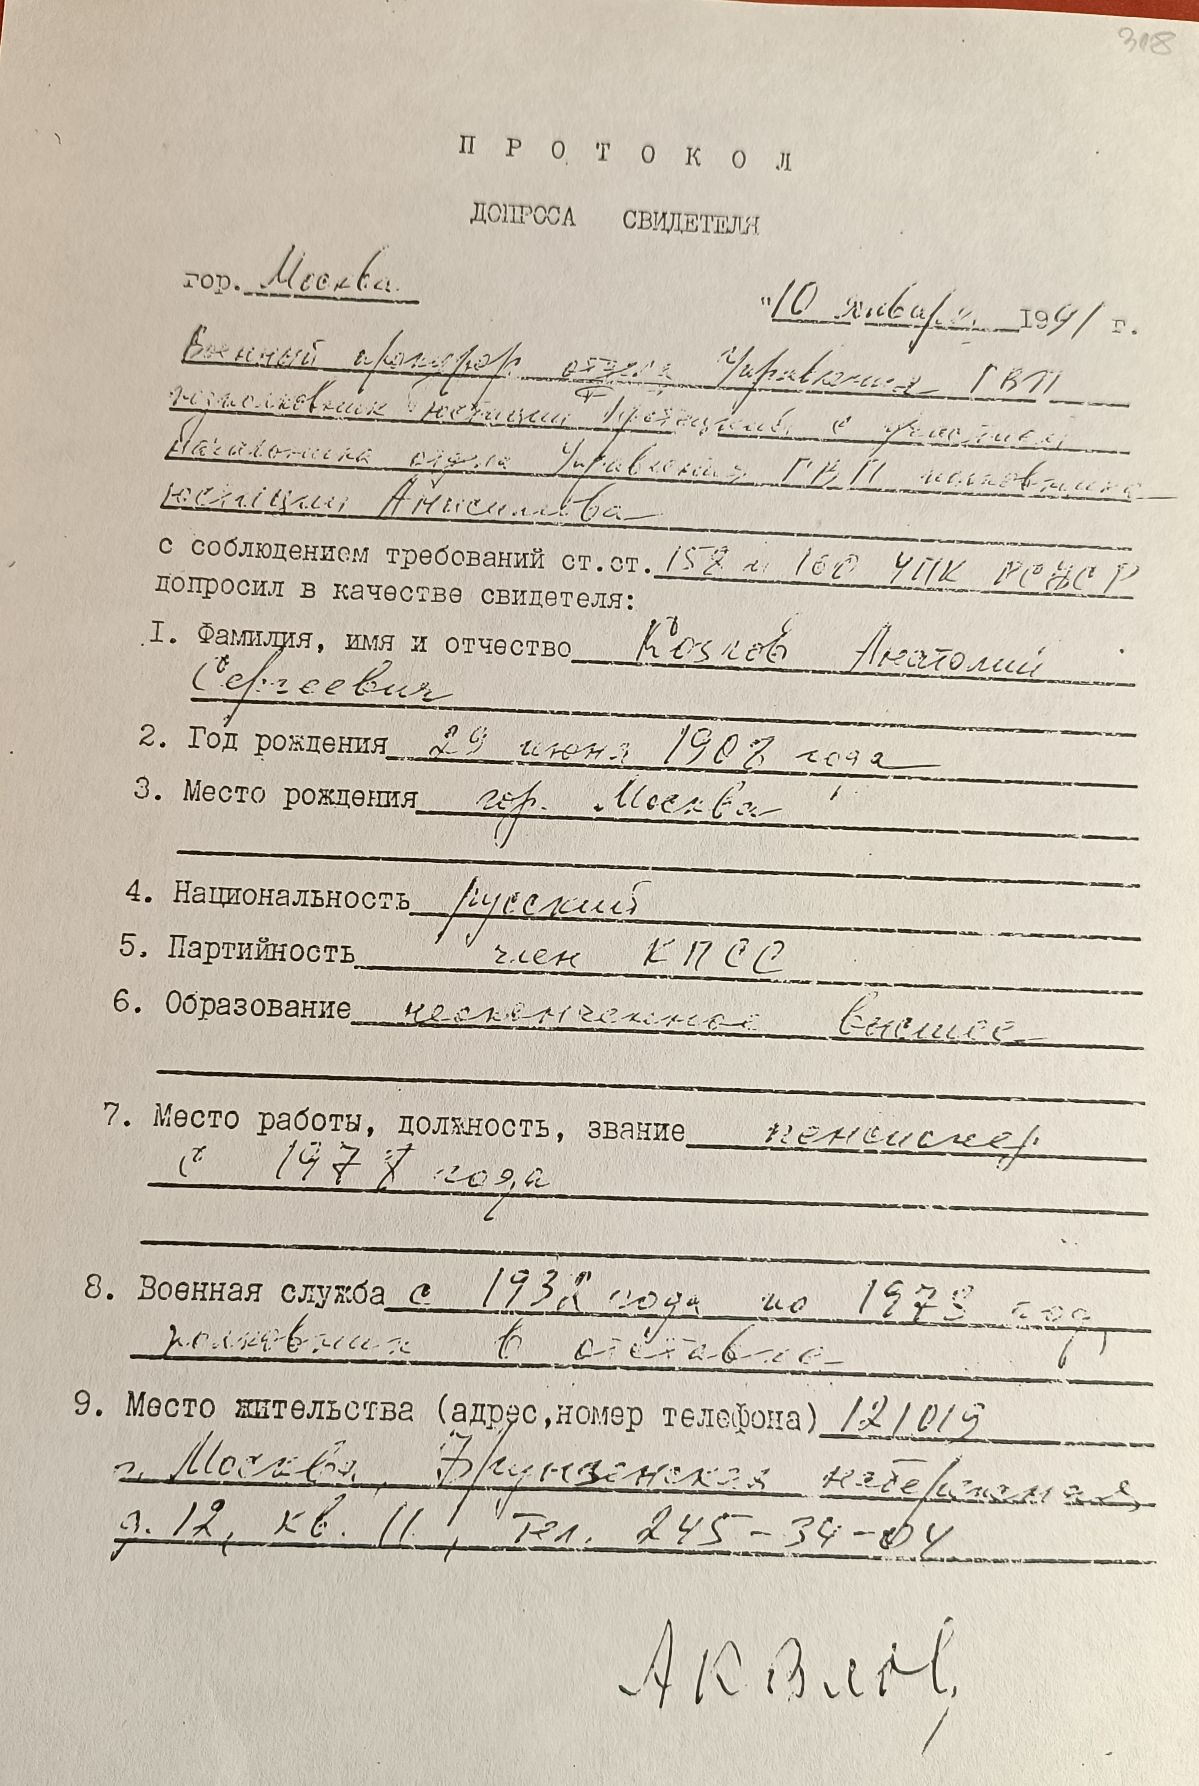 318
ПРОТОКОЛ
ДОПРОСА СВИДЕТЕЛЯ
гор. Москва.
"10 января 1991 г.
Военный прокурор отдела Управления ГВП
подполковник юстиции с участием
начальника отдела Управления ГВП полковника
юстиции Анисимова
с соблюдением требований ст.ст. 158 и 160 УПК РСФСР
допросил в качестве свидетеля:
I. Фамилия, имя и отчество Козлов Анатолий
Сергеевич
2. Год рождения 29 июня 1908 года
3. Место рождения гор. Москва
4. Национальность русский
5. Партийность член КПСС
6. Образование неоконченное высшее
7. Место работы, должность, звание пенсионер
с 1977 года
8. Военная служба с 1932 года по 1973 год,
полковник в отставке
9. Место жительства (адрес,номер телефона) 121019
г. Москва, Фрунзенская набережная,
д. 12, кв. 11, тел. 245-34-04